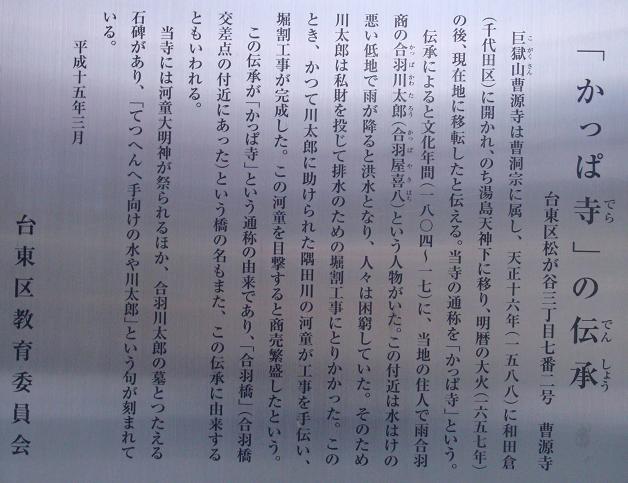 「かっぱ寺」の伝承
でら
でんしょう
台東区松が谷三丁目七番二号　曹源寺
こがくさん
巨嶽山曹源寺は曹洞宗に属し、天正十六年（一五八八）に和田倉
（千代田区）に開かれ、のち湯島天神下に移り、明暦の大火（一六五七年）
の後、現在地に移転したと伝える。当寺の通称を「かっぱ寺」という。
伝承によると文化年間（一八〇四～一七）に、当地の住人で雨合羽
かっぱかわたろう
かっぱやきはち
商の合羽川太郎（合羽屋喜八）という人物がいた。この付近は水はけの
悪い低地で雨が降ると洪水となり、人々は困窮していた。そのため
川太郎は私財を投じて排水のための堀割工事にとりかかった。この
とき、かつて川太郎に助けられた隅田川の河童が工事を手伝い、
堀割工事が完成した。この河童を目撃すると商売繁盛したという。
この伝承が「かっぱ寺」という通称の由来であり、「合羽橋」（合羽橋
交差点の付近にあった）という橋の名もまた、この伝承に由来する
ともいわれる。
当寺には河童大明神が祭られるほか、合羽川太郎の墓とつたえる
石碑があり、「てつへんへ手向けの水や川太郎」という句が刻まれて
いる。
平成十五年三月
台東区教育委員会